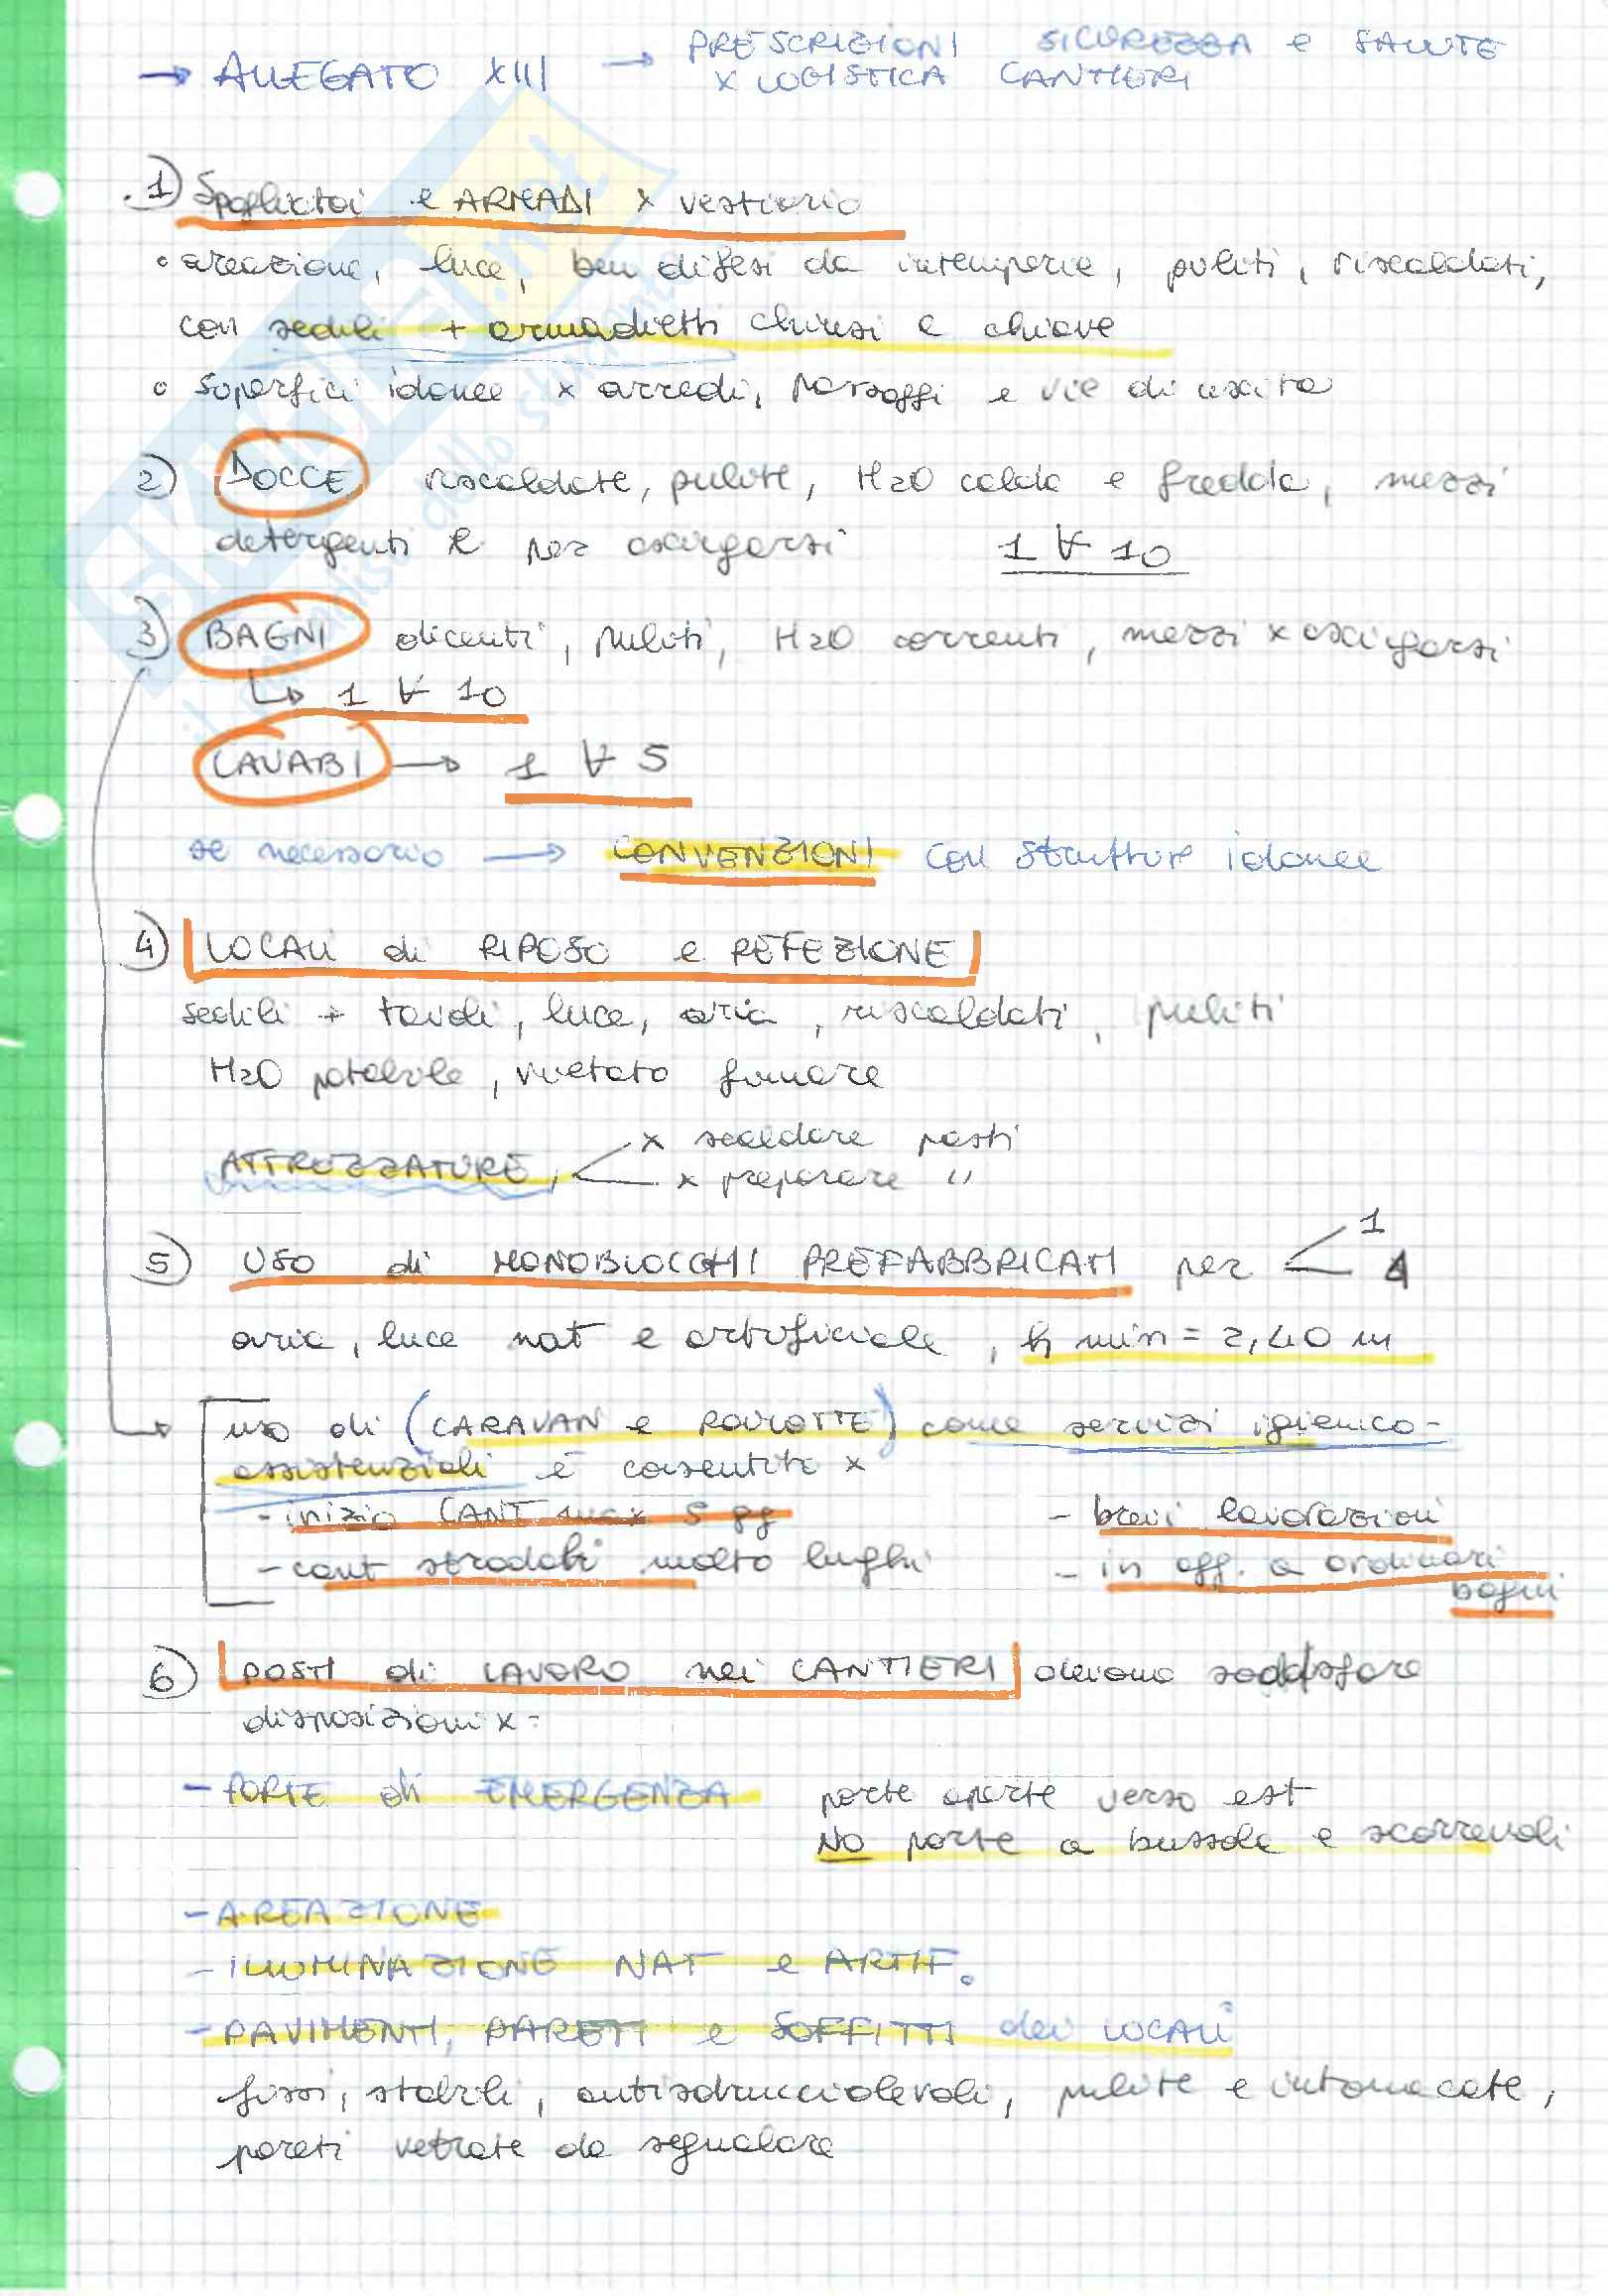 → ALLEGATO XIII → PRESCRIZIONI SICUREZZA e SALUTE
x LOGISTICA CANTIERI
1) Spogliatoi e ARMADI x vestiario
° areazione, luce, ben difesi da intemperie, puliti, riscaldati,
con sedili + armadietti chiusi a chiave
° superfici idonee x arredi, passaggi e vie di uscita
2) DOCCE riscaldate, pulite, H2O calda e fredda, mezzi
detergenti e per asciugarsi 1 ∀ 10
3) BAGNI dicenti, puliti, H2O correnti, mezzi x asciugarsi
↳ 1 ∀ 10
LAVABI → 1 ∀ 5
se necessario → CONVENZIONI con strutture idonee
4) LOCALI di RIPOSO e REFEZIONE
sedili + tavoli, luce, aria, riscaldati, puliti
H2O potabile, vietato fumare
ATTREZZATURE x scaldare pasti
x preparare "
5) USO di MONOBLOCCHI PREFABBRICATI per 1
4
aria, luce nat e artificiale, h min = 2,40 m
uso di (CARAVAN e ROULOTTE) come servizi igienico-
assistenziali è consentito x
- inizio CANT max 5 gg - brevi lavorazioni
- cant stradali molto lughi - in agg. a ordinari
bagni
6) POSTI di LAVORO nei CANTIERI devono soddisfare
disposizioni x:
- PORTE di EMERGENZA porte aperte verso est
NO porte a bussola e scorrevoli
- AREAZIONE
- ILLUMINAZIONE NAT e ARTIF.
- PAVIMENTI, PARETI e SOFFITTI dei LOCALI
fissi, stabili, antisdrucciolevoli, pulite e intonacate,
pareti vetrate da segnalare
SKUOLA.net